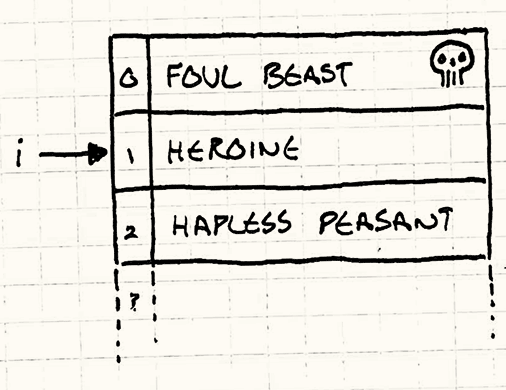 0 FOUL BEAST
i 1 HEROINE
2 HAPLESS PEASANT
?